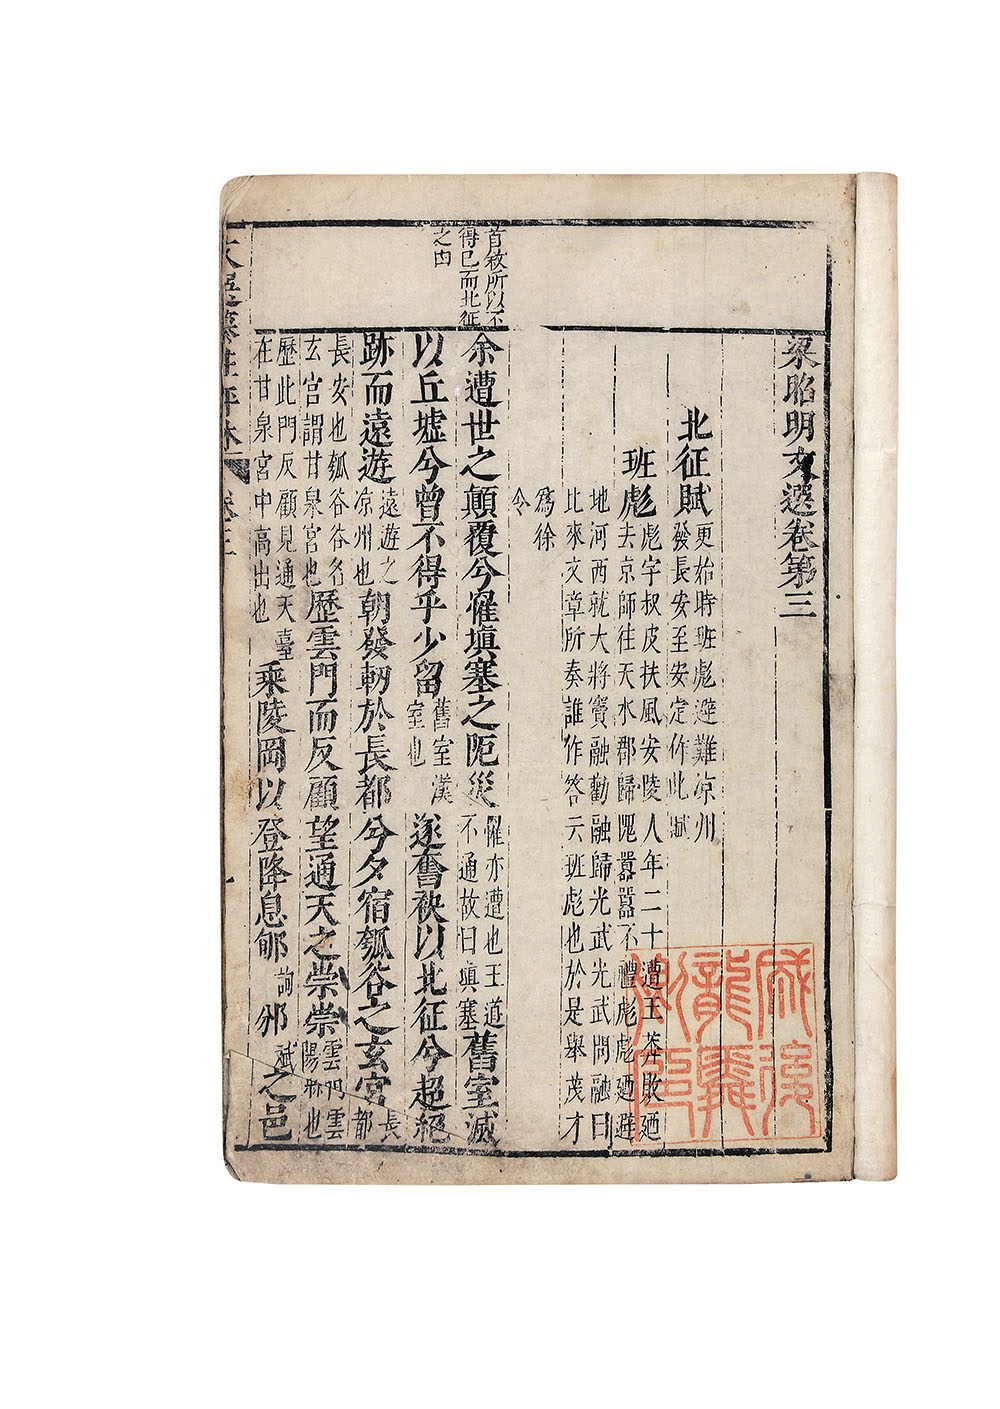 梁昭明文選卷第三
北征賦
更始時班彪避難凉州
發長安至安定作此賦
班彪
彪字叔皮扶風安陵人年二十遭王莽敗廼
去京師往天水郡歸隗囂囂不禮彪彪廼避
地河西就大將竇融勸融歸光武光武問融曰
比來文章所奏誰作答云班彪也於是舉茂才
爲徐
令
首敘所以不
得已而北征
之由
余遭世之顛覆兮罹塡塞之阨災
罹亦遭也王道
不通故曰塡塞
舊室滅
以丘墟兮曾不得乎少留
舊室漢
室也
遂奮袂以北征兮超絕
跡而遠遊
遠遊之
凉州也
朝發軔於長都兮夕宿瓠谷之玄宫
長
都
長安也瓠谷谷名
玄宫謂甘泉宮也
歷雲門而反顧望通天之崇崇
雲門雲
陽縣也
歷此門反顧見通天臺
在甘泉宮中高出也
乘陵岡以登降息郇
詢
邠
斌
之邑